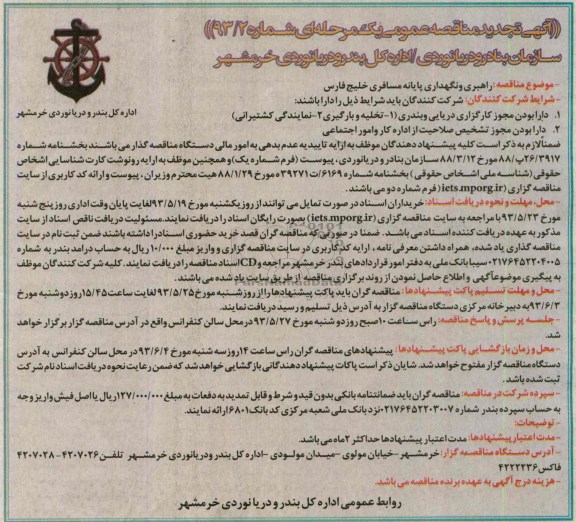 ((آگهی تجدید مناقصه عمومی یک مرحله ای شماره ۹۳/۲))
سازمان بنادر و دریانوردی /اداره کل بندر و دریانوردی خرمشهر
اداره کل بندر و دریانوردی خرمشهر
- موضوع مناقصه: راهبری و نگهداری پایانه مسافری خلیج فارس
- شرایط شرکت کنندگان: شرکت کنندگان باید شرایط ذیل را دارا باشند:
۱. دارا بودن مجوز کارگزاری دریایی و بندری (۱-تخلیه و بارگیری ۲-نمایندگی کشتیرانی)
۲. دارا بودن مجوز تشخیص صلاحیت از اداره کار و امور اجتماعی
ضمناً لازم به ذکر است کلیه پیشنهاد دهندگان موظف به ارایه تاییدیه عدم بدهی به امور مالی دستگاه مناقصه گذار می باشند بخشنامه شماره
۲۶/۳۹۱۷/ب/۸۸ مورخ ۸۸/۳/۱۲ سازمان بنادر و دریانوردی، پیوست (فرم شماره یک) و همچنین موظف به ارایه رونوشت کارت شناسایی اشخاص
حقوقی (شناسه ملی اشخاص حقوقی) بخشنامه شماره ۶۱۶۹/ت ۳۹۲۷۱ه مورخ ۸۸/۱/۲۹ هیت محترم وزیران، پیوست و ارائه کد کاربری از سایت
مناقصه گزاری (iets.mporg.ir) (فرم شماره دو می باشند.
- محل، مهلت و نحوه دریافت اسناد: خریداران اسناد در صورت تمایل می توانند از روز یکشنبه مورخ ۹۳/۵/۱۹ لغایت پایان وقت اداری روز پنج شنبه
مورخ ۹۳/۵/۲۳ با مراجعه به سایت مناقصه گزاری (iets.mporg.ir) بصورت رایگان اسناد را دریافت نمایند. مسئولیت دریافت ناقص اسناد از سایت
مذکور به عهده دریافت کننده اسناد می باشد. ضمنا در صورتی که مناقصه گران قصد خرید حضوری اسناد را داشته باشند ضمن ثبت نام در سایت
مناقصه گذاری یاد شده، همراه داشتن معرفی نامه، ارایه کد کاربری در سایت مناقصه گزاری و واریز مبلغ ۱۰/۰۰۰ ریال به حساب درامد بندر به شماره
۲۱۷۶۴۵۲۲۰۴۰۰۵ سیبا بانک ملی به دفتر امور قراردادهای بندر خرمشهر مراجعه و CD اسناد مناقصه را دریافت نمایند. کلیه شرکت کنندگان موظف
به پیگیری موضوعا آگهی و اطلاع حاصل نمودن از روند برگزاری مناقصه از طریق سایت یاد شده می باشند.
- محل و مهلت تسلیم پاکت پیشنهادها: مناقصه گران باید پاکت پیشنهادها را از روز شنبه مورخ ۹۳/۵/۲۵ لغایت ساعت ۱۵/۴۵ روز دوشنبه مورخ
۹۳/۶/۳ به دبیرخانه مرکزی دستگاه مناقصه گزار به آدرس ذیل تسلیم و رسید دریافت نمایند.
- جلسه پرسش و پاسخ مناقصه: راس ساعت ۱۰ صبح روز دوشنبه مورخ ۹۳/۵/۲۷ در محل سالن کنفرانس واقع در آدرس مناقصه گزار برگزار خواهد
شد.
- محل و زمان بازگشایی پاکت پیشنهادها: پیشنهادهای مناقصه گران راس ساعت ۱۴ روز سه شنبه مورخ ۹۳/۶/۴ در محل سالن کنفرانس به آدرس
دستگاه مناقصه گزار مفتوح خواهد شد. شایان ذکر است پاکات پیشنهاد دهندگانی بازگشایی خواهد شد که ضمن رعایت نحوه دریافت اسناد نام شرکت
ثبت شده باشد.
- سپرده شرکت در مناقصه: مناقصه گران باید ضمانتنامه بانکی بدون قید و شرط و قابل تمدید به دفعات به مبلغ ۱۲۷/۰۰۰/۰۰۰ ریال یا اصل فیش واریز وجه
به حساب سپرده بندر شماره ۲۱۷۶۴۵۲۲۰۳۰۰۷ نزد بانک ملی شعبه مرکزی کد بانک ۶۸۰۱ ارائه نمایند.
- توضیحات:
- مدت اعتبار پیشنهادها: مدت اعتبار پیشنهادها حداکثر ۲ ماه می باشد.
- آدرس دستگاه مناقصه گزار: خرمشهر -خیابان مولوی -میدان مولودی -اداره کل بندر و دریانوردی خرمشهر تلفن ۴۲۰۷۰۲۶ - ۴۲۰۷۰۲۸
فاکس ۴۲۲۲۲۳۶
- هزینه درج آگهی به عهده برنده مناقصه می باشد.
روابط عمومی اداره کل بندر و دریانوردی خرمشهر